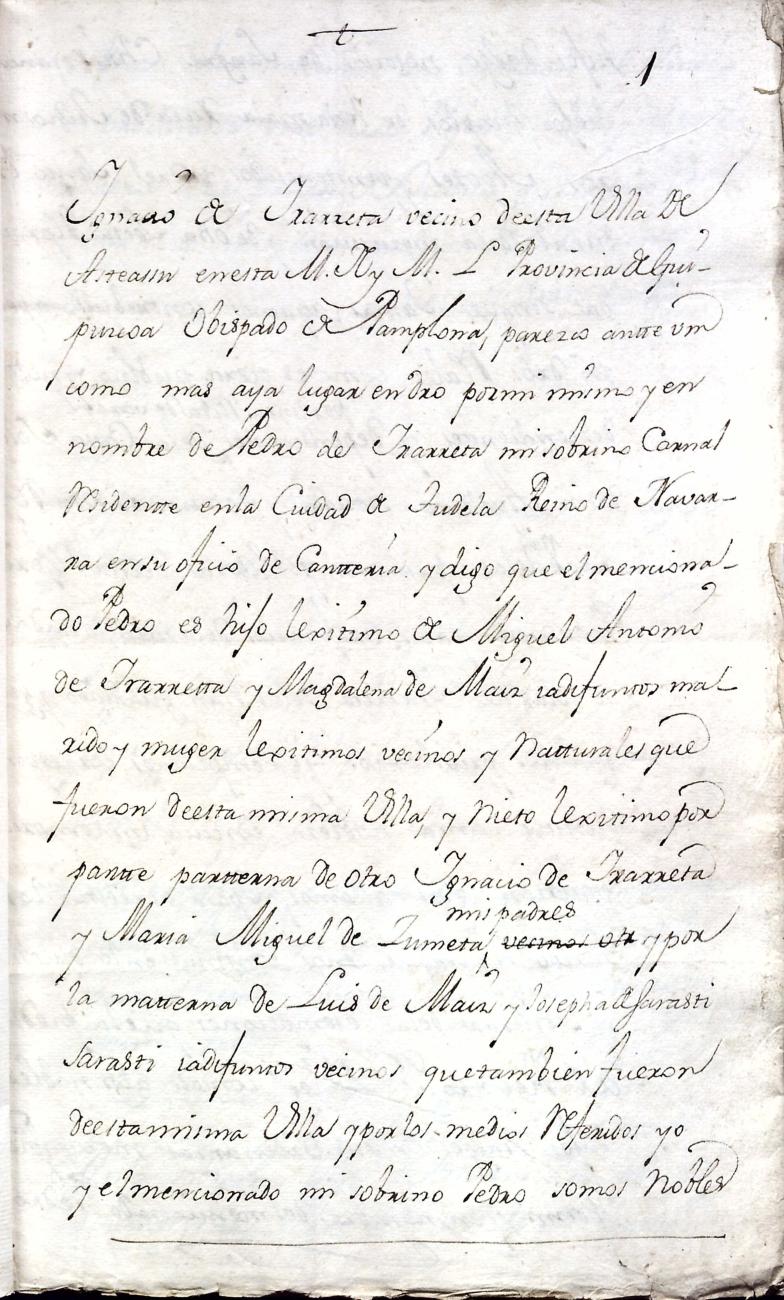 t
1
Ignacio de Irarreta vecino deesta Villa de
Asteasu enesta M. N y M. L Provincia de Guí-
puzcoa Obispado de Pamplona, parezco antte vm
como mas aya lugar en dro por mi mismo y en
nombre de Pedro de Irarreta mi sobrino Carnal
Residentte en la Ciudad de Tudela Reino de Navar-
ra en su oficio de Canttería y digo que el menciona-
do Pedro es hijo lexitimo de Miguel Antonio
de Irarretta y Magdalena de Maiz iadifuntos ma-
rido y muger lexitimos vecinos y Natturales que
fueron deesta misma Villa, y Nieto lexitimo por
partte partterna de otro Ignacio de Irarreta
mis padres
y Maria Miguel de Zumeta, vecinos otr y por
la matterna de Luis de Maiz y Josepha de Sarasti
Sarasti iadifuntos vecinos que tambien fueron
deesta misma Villa y por los medios Referidos yo
y el mencionado mi sobrino Pedro somos Nobles